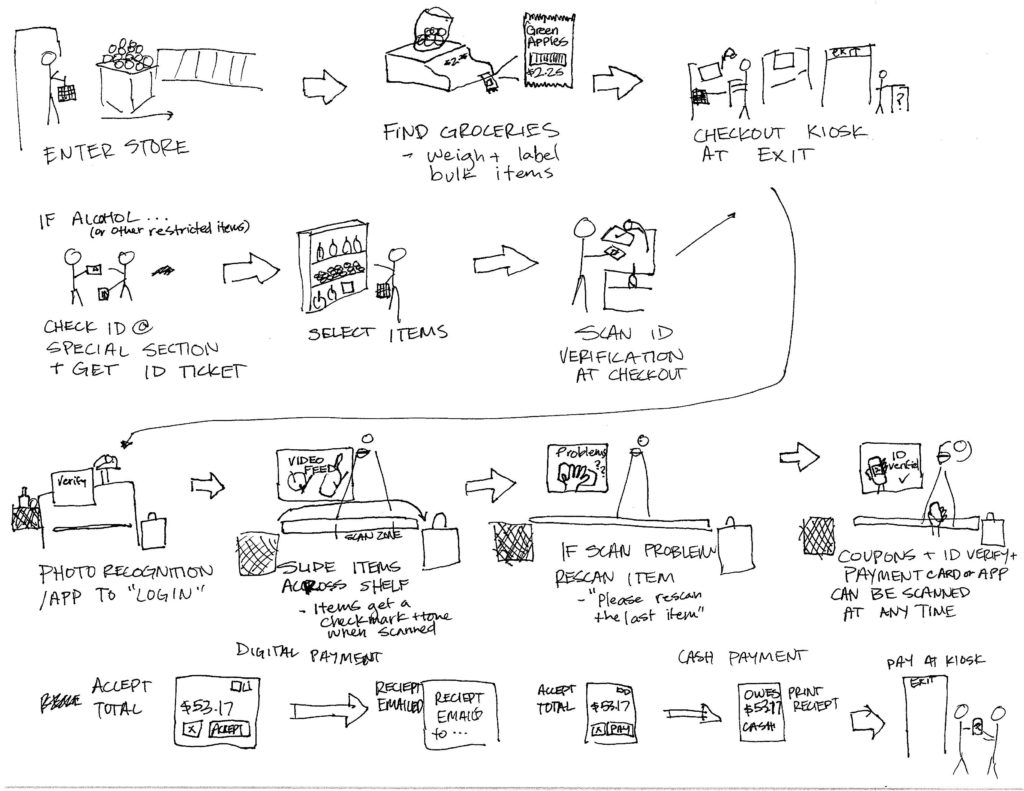 Green
Apples
$2.25
$2.25
EXIT
?
ENTER STORE
FIND GROCERIES
- weigh + label
bulk items
CHECKOUT KIOSK
AT EXIT
IF ALCOHOL ...
(or other restricted items)
CHECK ID @
SPECIAL SECTION
+ GET ID TICKET
SELECT ITEMS
SCAN ID
VERIFICATION
AT CHECKOUT
Verify
VIDEO
FEED
SCAN ZONE
Problems
???
ID
Verified
✓
PHOTO RECOGNITION
/APP TO "LOGIN"
SLIDE ITEMS
ACROSS SHELF
- Items get a
checkmark + tone
when scanned
IF SCAN PROBLEM
RESCAN ITEM
- "Please rescan
the last item"
COUPONS + ID VERIFY +
PAYMENT CARD or APP
CAN BE SCANNED
AT ANY TIME
DIGITAL PAYMENT
ACCEPT
TOTAL
$53.17
X ACCEPT
RECIEPT
EMAILED
RECIEPT
EMAILD
to ...
CASH PAYMENT
ACCEPT
TOTAL
$53.17
X PAY
OWES
$53.17
CASH
PRINT
RECIEPT
PAY AT KIOSK
EXIT